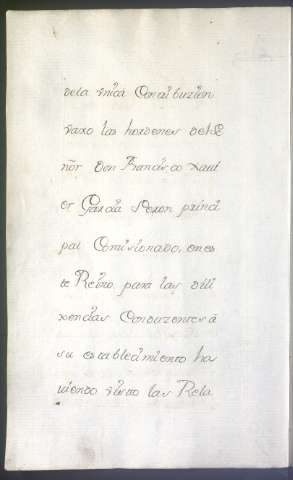 dela vnica Conttibuzion
vaxo las hordenes del Se
ñor Don Francisco Xavi
er Garcia Xexon princi
pal Comisionado, en es
te Reino, para las dili
xencias Conduzentes â
su establecimiento ha
viendo visto las Rela